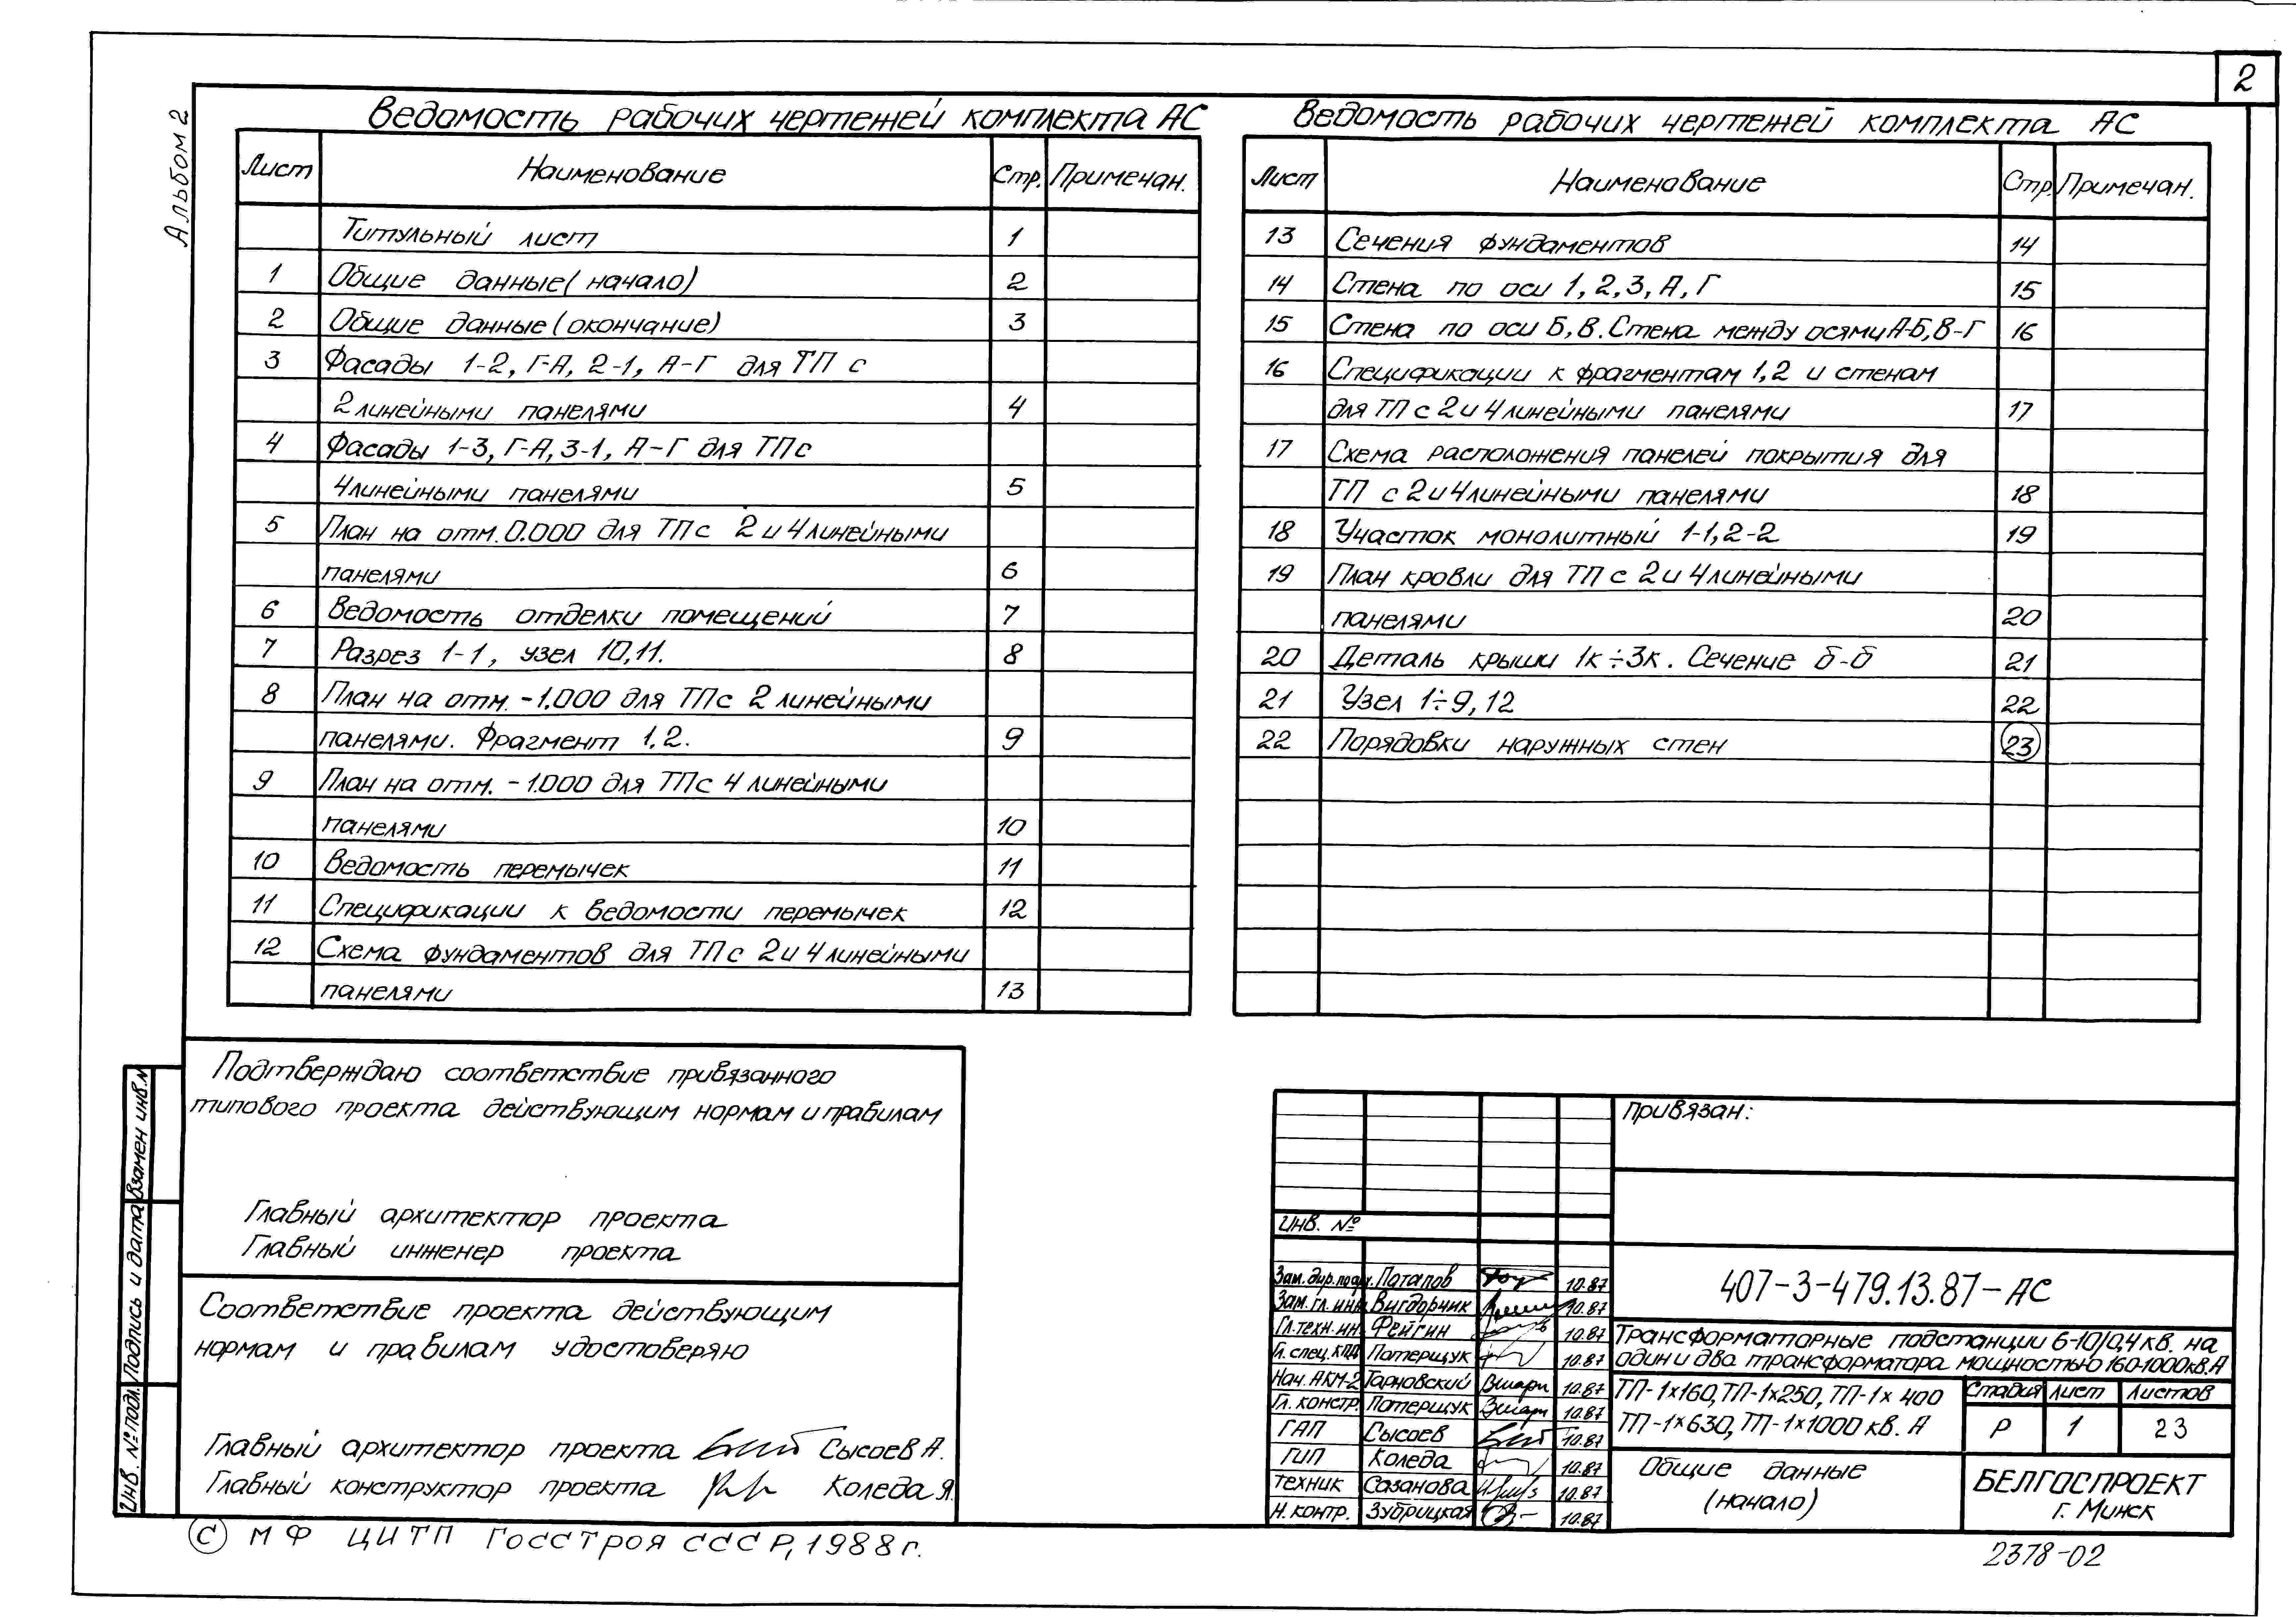 2
Альбом 2
Ведомость рабочих чертежей комплекта АС
Лист Наименование Стр. Примечан.
Титульный лист 1
1 Общие данные (начало) 2
2 Общие данные (окончание) 3
3 Фасады 1-2, Г-А, 2-1, А-Г для ТП с
2 линейными панелями 4
4 Фасады 1-3, Г-А, 3-1, А-Г для ТП с
4 линейными панелями 5
5 План на отм. 0.000 для ТП с 2 и 4 линейными
панелями 6
6 Ведомость отделки помещений 7
7 Разрез 1-1, узел 10,11. 8
8 План на отм. -1.000 для ТП с 2 линейными
панелями. Фрагмент 1,2. 9
9 План на отм. -1.000 для ТП с 4 линейными
панелями 10
10 Ведомость перемычек 11
11 Спецификации к ведомости перемычек 12
12 Схема фундаментов для ТП с 2 и 4 линейными
панелями 13
Ведомость рабочих чертежей комплекта АС
Лист Наименование Стр. Примечан.
13 Сечения фундаментов 14
14 Стена по оси 1, 2, 3, А, Г 15
15 Стена по оси Б, В. Стена между осями А-Б, В-Г 16
16 Спецификации к фрагментам 1,2 и стенам
для ТП с 2 и 4 линейными панелями 17
17 Схема расположения панелей покрытия для
ТП с 2 и 4 линейными панелями 18
18 Участок монолитный 1-1, 2-2 19
19 План кровли для ТП с 2 и 4 линейными
панелями 20
20 Деталь крыши 1к÷3к. Сечение б-б 21
21 Узел 1÷9, 12 22
22 Порядовки наружных стен 23
Подтверждаю соответствие привязанного
типового проекта действующим нормам и правилам
Главный архитектор проекта
Главный инженер проекта
Соответствие проекта действующим
нормам и правилам удостоверяю
Главный архитектор проекта Сысоев А.
Главный конструктор проекта Коледа Я.
Инв. № подл. Подпись и дата Взамен инв. №
Привязан:
Инв. №
Зам. дир. по Потапов 10.87
Зам. гл. инж. Вигдорчик 10.87
Гл. техн. ин. Фейгин 10.87
Гл. спец. Потерщук 10.87
Нач. АКМ-2 Тарновский 10.87
Гл. констр. Потерщук 10.87
ГАП Сысоев 10.87
ГИП Коледа 10.87
Техник Сазанова 10.87
Н. контр. Зубрицкая 10.87
407-3-479.13.87-АС
Трансформаторные подстанции 6-10/0,4 кв. на
один и два трансформатора мощностью 160-1000 кв.А
ТП-1×160, ТП-1×250, ТП-1×400
ТП-1×630, ТП-1×1000 кв.А
Стадия Лист Листов
Р 1 23
Общие данные
(начало)
БЕЛГОСПРОЕКТ
г. Минск
© МФ ЦИТП Госстроя СССР, 1988г.
2378-02